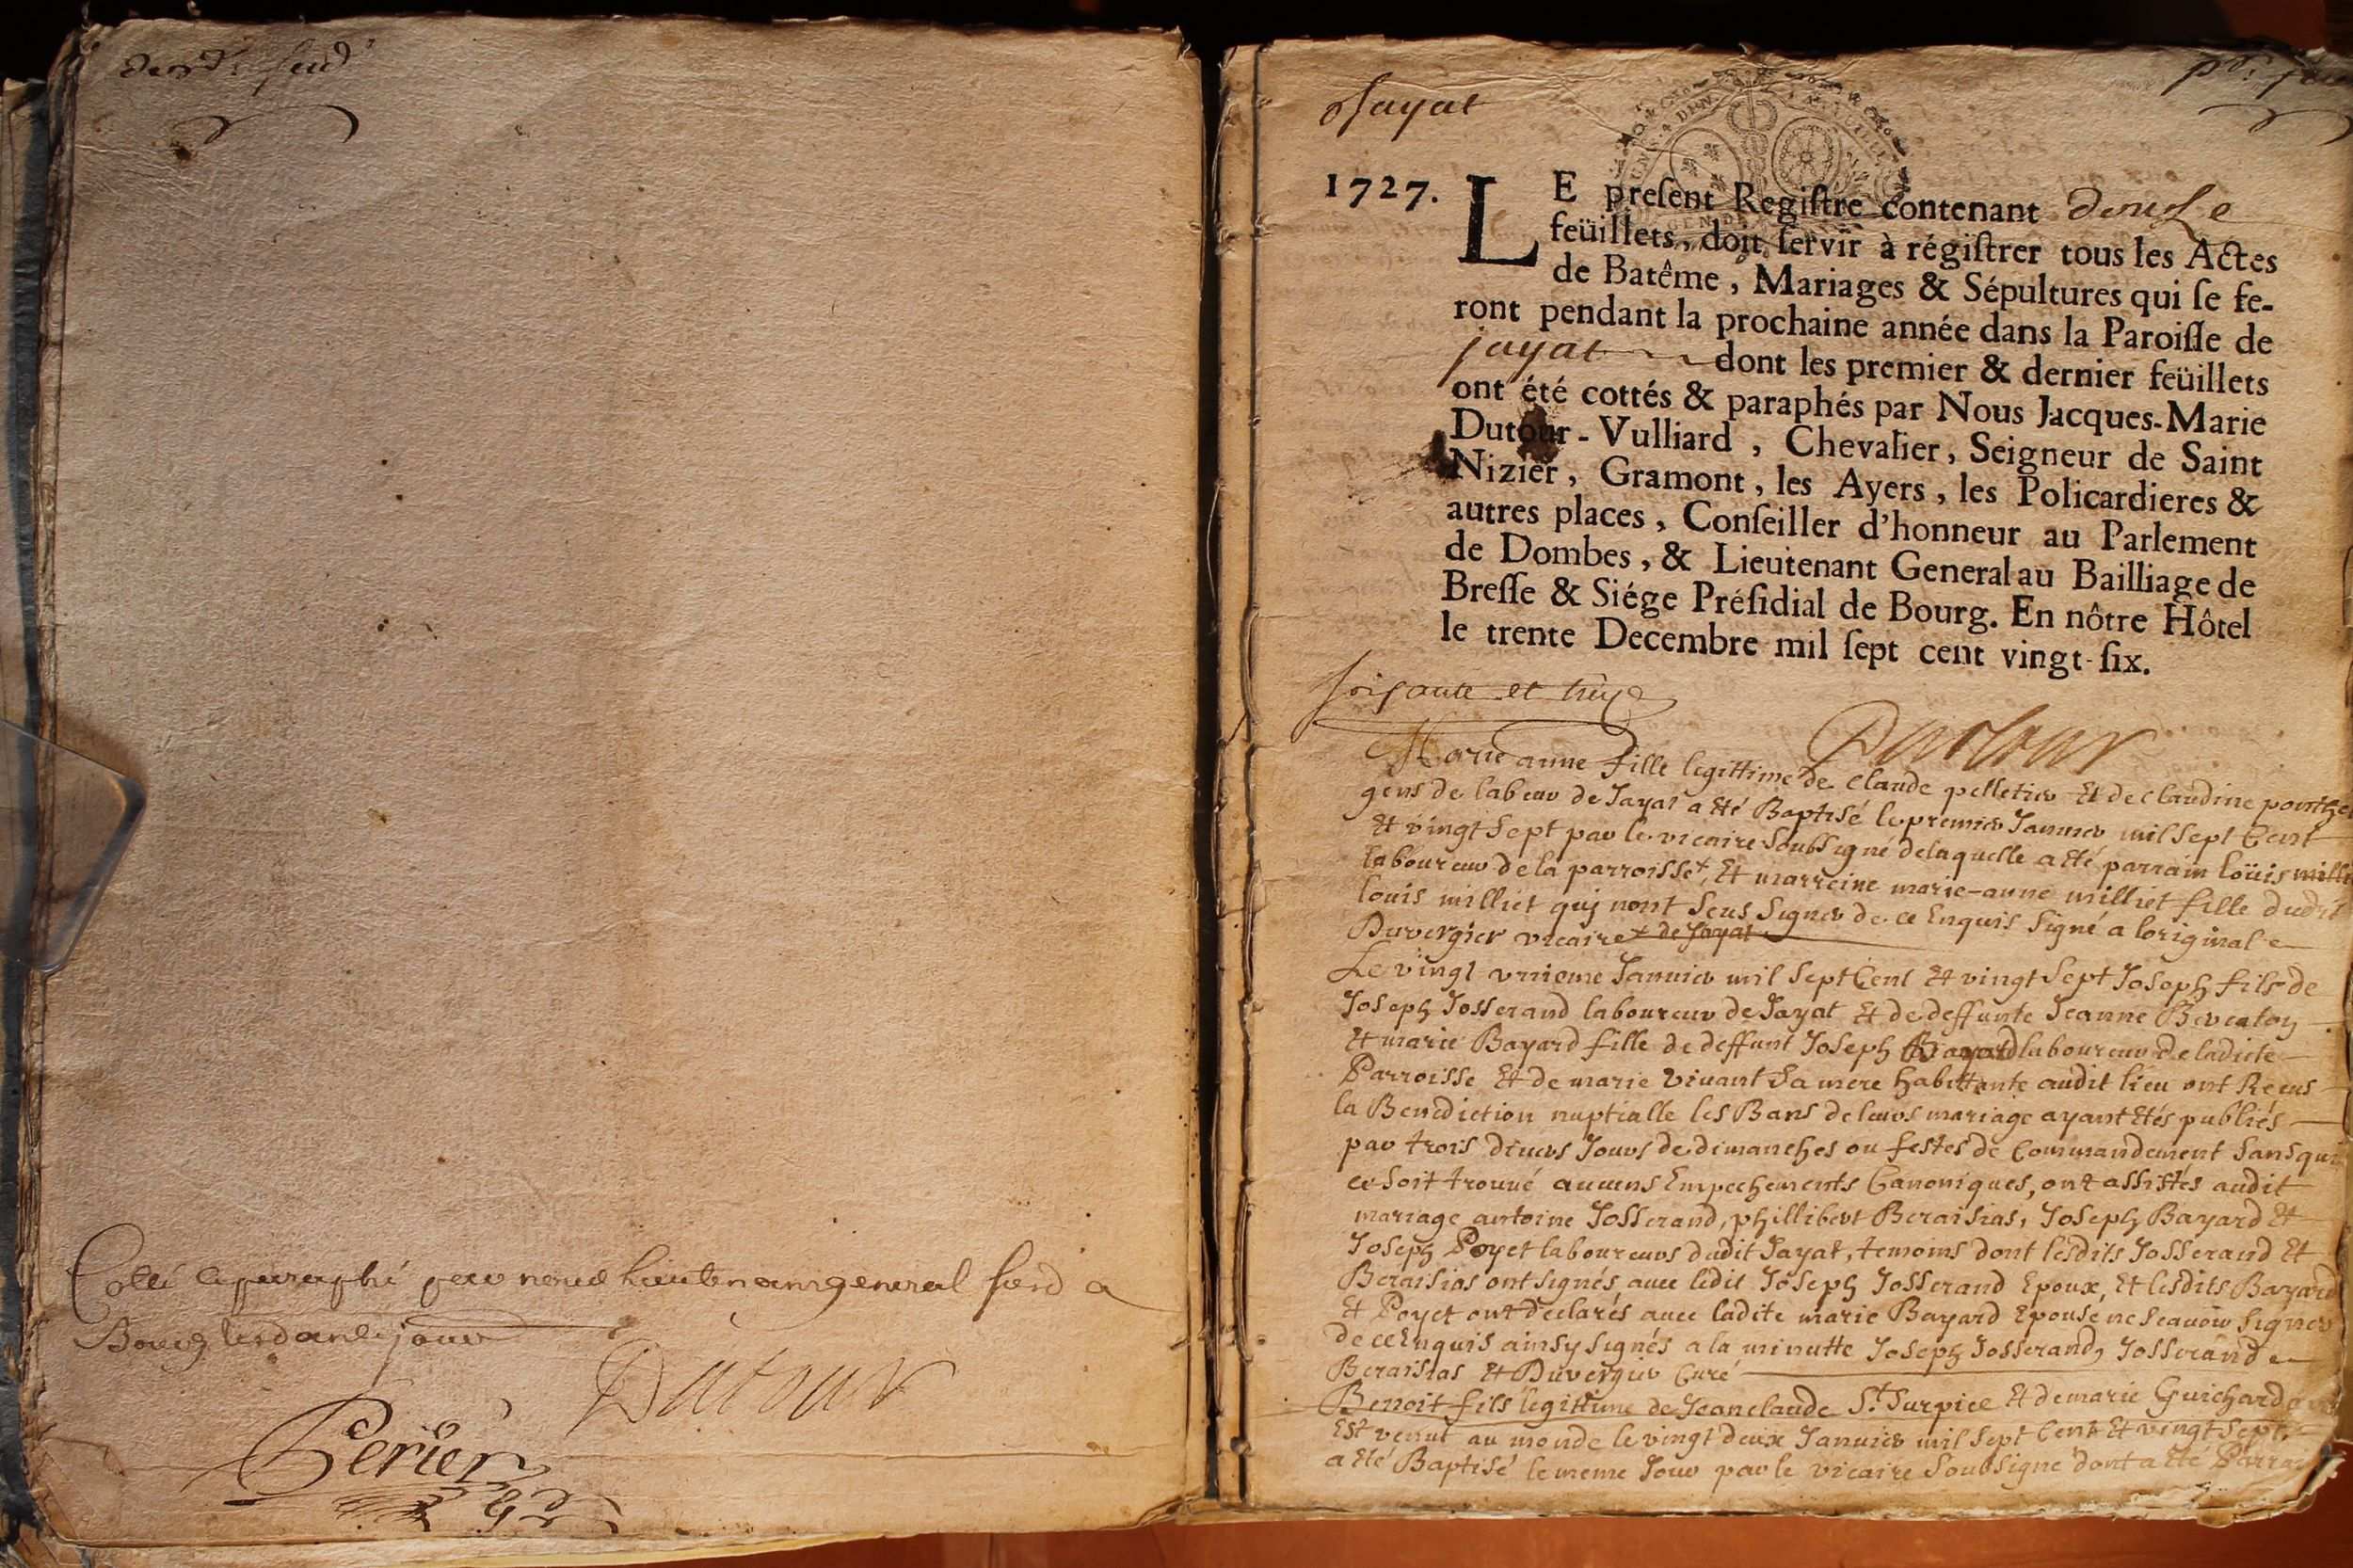 Cotté et paraphé par nous Lieutenant general fard a
Bourg lesdan et jour
Dutour
Perier
Jayat
1727.
LE preſent Regiſtre contenant douze
feüillets, doit ſervir à régiſtrer tous les Actes
de Batême, Mariages & Sépultures qui ſe fe-
ront pendant la prochaine année dans la Paroiſſe de
jayat dont les premier & dernier feüillets
ont été cottés & paraphés par Nous Jacques-Marie
Dutour-Vulliard, Chevalier, Seigneur de Saint
Nizier, Gramont, les Ayers, les Policardieres &
autres places, Conſeiller d'honneur au Parlement
de Dombes, & Lieutenant General au Bailliage de
Breſſe & Siége Préſidial de Bourg. En nôtre Hôtel
le trente Decembre mil ſept cent vingt-ſix.
soisante et
Dutour
Marie anne fille legittime de claude pelletier Et de claudine
gens de labeur de Jayat a Eté Baptisé le premier Janvier mil Sept Cent
Et vingt Sept par le vicaire Soubsigné de laquelle a Eté parrain loüis
laboureur de la parroisse+, Et marreine marie-anne milliet fille dudit
louis milliet qui nont Sceus Signer de ce Enquis Signé a loriginal
Duvergier vicaire + de Jayat
Le vingt vnieme Janvier mil Sept Cent Et vingt Sept Joseph fils de
Joseph Josserand laboureur de Jayat Et de deffunte Jeanne
Et marie Bayard fille de deffunt Joseph Bayard laboureur de ladicte
Parroisse Et de marie vivant Sa mere habittante audit lieu ont Receus
la Benediction nuptialle les Bans de leurs mariage ayant Etés publiés
par trois divers Jours de dimanches ou festes de Commandement Sans qui
ce Soit trouvé aucuns Empechements Canoniques, ont assistés audit
mariage antoine Josserand, phillibert Beraisias, Joseph Bayard Et
Joseph Poyet laboureurs dudit Jayat, temoins dont lesdits Josserand Et
Beraisias ont Signés, avec ledit Joseph Josserand Epoux, Et lesdits Bayard
Et Poyet ont declarés avec ladite marie Bayard Epouse ne Scavoir Signer
de ce Enquis ainsy Signés a la minutte Joseph Josserand, Josserand
Beraisias Et Duvergier Curé
Benoit fils legittime de Jean claude St. Surpice Et de marie Guichard
Est venut au monde le vingt deux Janvier mil Sept Cent Et vingt Sept,
a Eté Baptisé le meme Jour par le vicaire Soubsigné dont a Eté